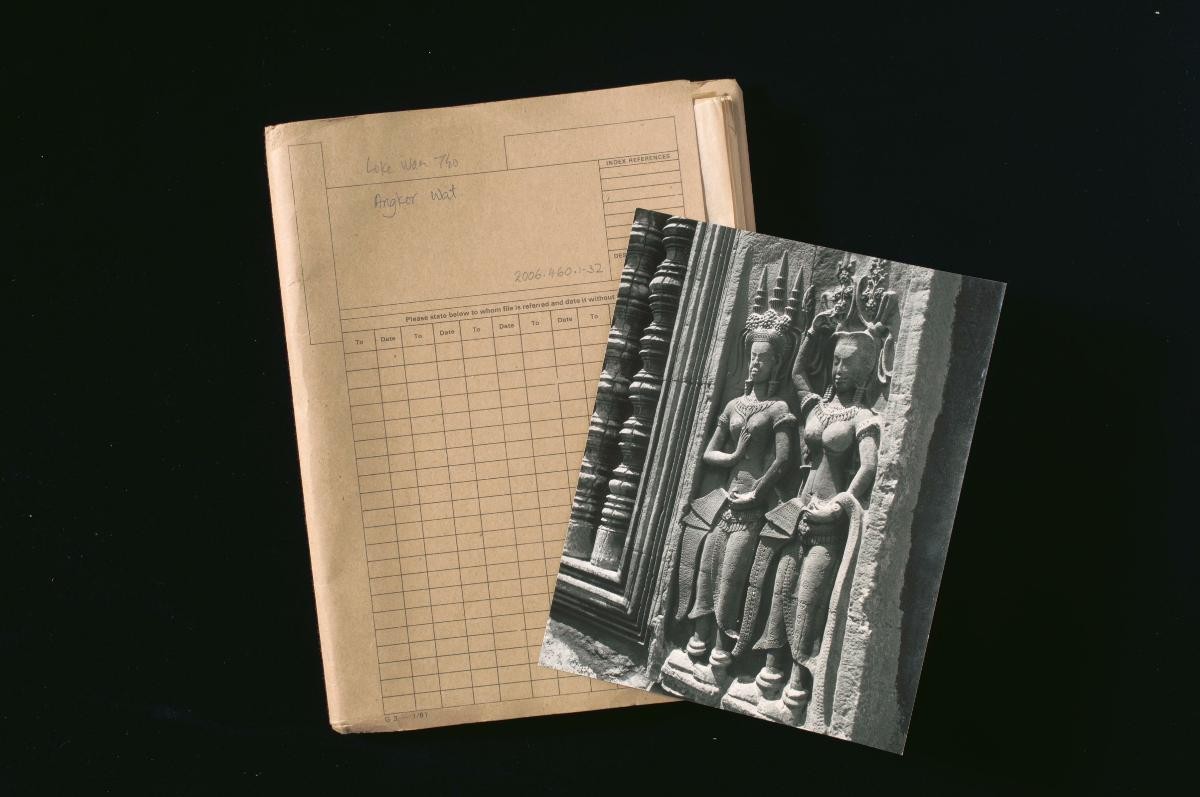 Loke Wan Tho
INDEX REFERENCES
Angkor Wat
2006.460.1-32
Please state below to whom file is referred and date it without
To Date To Date To Date To Date To